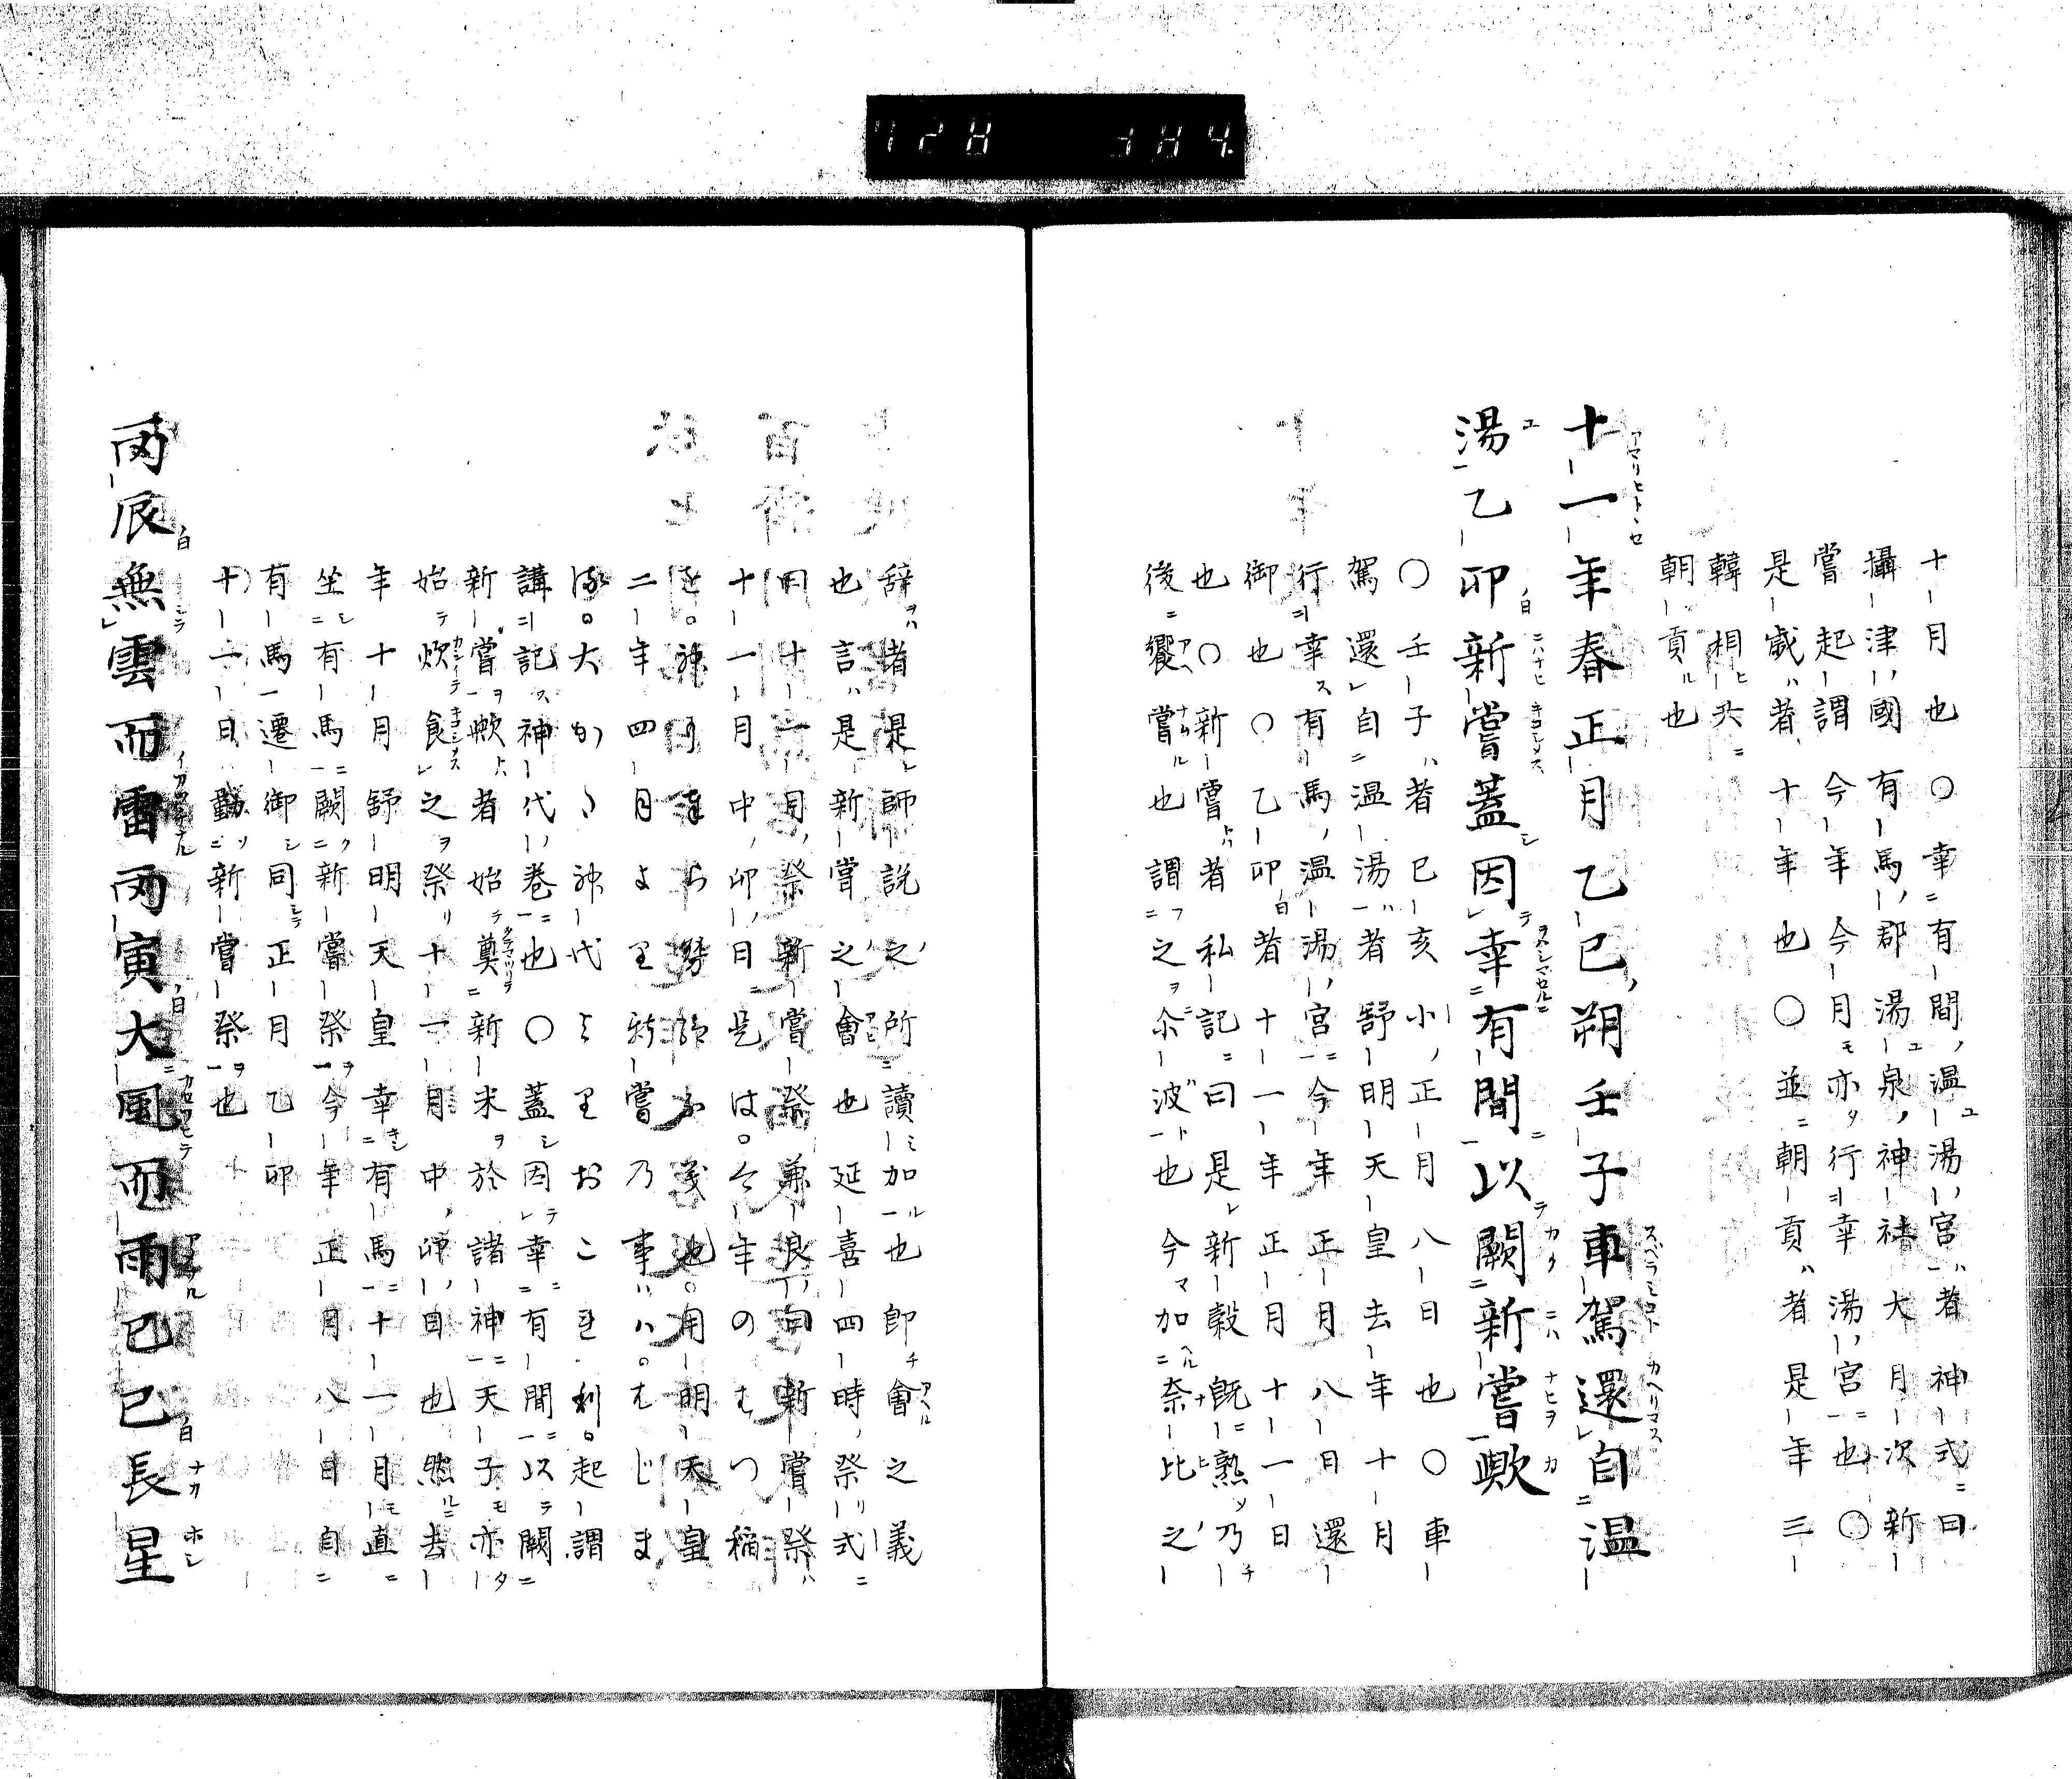 十月也〇幸有間温湯宮者神式曰
攝津國有馬郡湯泉神社大月次新
嘗起謂今年今月亦行幸湯宮也〇
是歳者十年也〇並朝貢者是年三
韓相共
朝貢也
十一年春正月乙巳朔壬子車駕還自温
湯乙卯新嘗蓋因幸有間以闕新嘗歟
〇壬子者已亥小正月八日也〇車
駕還自温湯者舒明天皇去年十月
行幸有馬温湯宮今年正月八日還
御也〇乙卯者十一年正月十一日
也〇新嘗者私記曰是新穀既熟乃
後饗嘗也謂之尒波也今加奈比之
辞者是師説之所讀加也即會之義
也言是新嘗之會也延喜四時祭式
曰十一月祭新嘗祭
十一月中卯日是は今年のもつ稲
二年四月より新嘗乃事ハむじま
講記神代巻也〇蓋因幸有間以闕
新嘗歟者始奠新米於諸神天子亦
始炊食之祭十一月中卯日也然去
年十月舒明天皇幸有馬十一月直
坐有馬闕新嘗祭今年正月八日自
有馬還御同正月乙卯
十一日勤新嘗祭也
丙辰無雲而雷丙寅大風而雨已巳長星